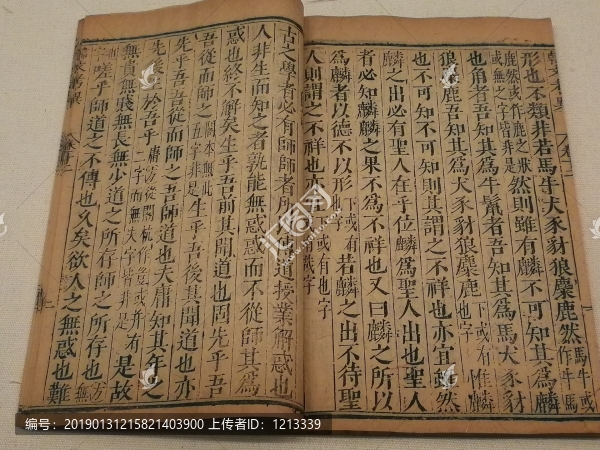 形也不類非若馬牛犬豕豺狼麋鹿然馬牛作牛馬
鹿然或作鹿之狀或無之字皆非是然則雖有麟不可知其爲麟
也角者吾知其爲牛鬣者吾知其爲馬犬豕豺
狼麋鹿吾知其爲犬豕豺狼麋鹿下或有也字惟麟
也不可知不可知則其謂之不祥也亦宜雖然
麟之出必有聖人在乎位麟爲聖人出也聖人
者必知麟麟之果不爲不祥也又曰麟之所以
爲麟者以德不以形下或有也字若麟之出不待聖
人則謂之不祥也亦宜
古之學者必有師師者所以傳道授業解惑也
人非生而知之者孰能無惑惑而不從師其爲
惑也終不解矣生乎吾前其聞道也固先乎吾
吾從而師之閣本無此五字非是生乎吾後其聞道也亦
先乎吾吾從而師之吾師道也夫庸知其年之
先後生於吾乎是故
無貴無賤無長無少道之所存師之所存也
嗟乎師道之不傳也久矣欲人之無惑也難
编号：20190131215821403900 上传者ID：1213339